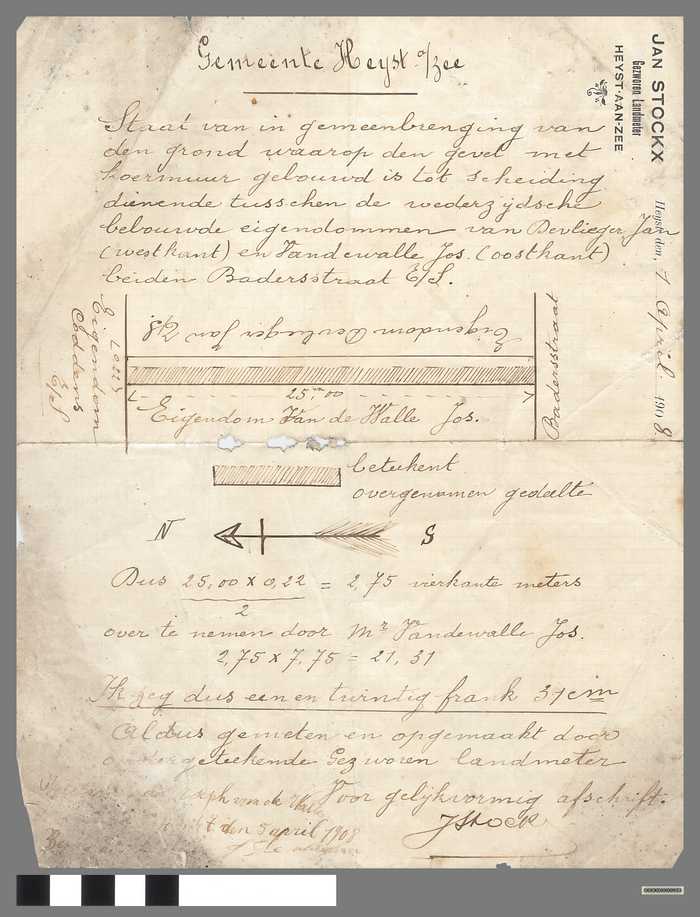 Gemeente Heyst a/zee
JAN STOCKX
Gezworen Landmeter
HEYST-AAN-ZEE
Heyst, den, 7 April 1908.
Staat van in gemeenbrenging van
den grond waarop den gevel met
koermuur gebouwd is tot scheiding
dienende tusschen de wederzijdsche
bebouwde eigendommen van Devlieger Jan
(westkant) en Vandewalle Jos. (oostkant)
beiden Badersstraat E/S.
Eigendom Devlieger Jan E/S.
Eigendom
E/S
25,m00
Eigendom Van de Walle Jos.
Badersstraat
beteekent
overgenomen gedeelte
N S
Dus 25,00 x 0,22 = 2,75 vierkante meters
2
over te nemen door Mr Vandewalle Jos.
2,75 x 7,75 = 21,31
Ik zeg dus een en twintig frank 31 cm
Aldus gemeten en opgemaakt door
ondergeteekende Gezworen landmeter
Voor gelijkvormig afschrift.
JStockx
den 5 april 1908